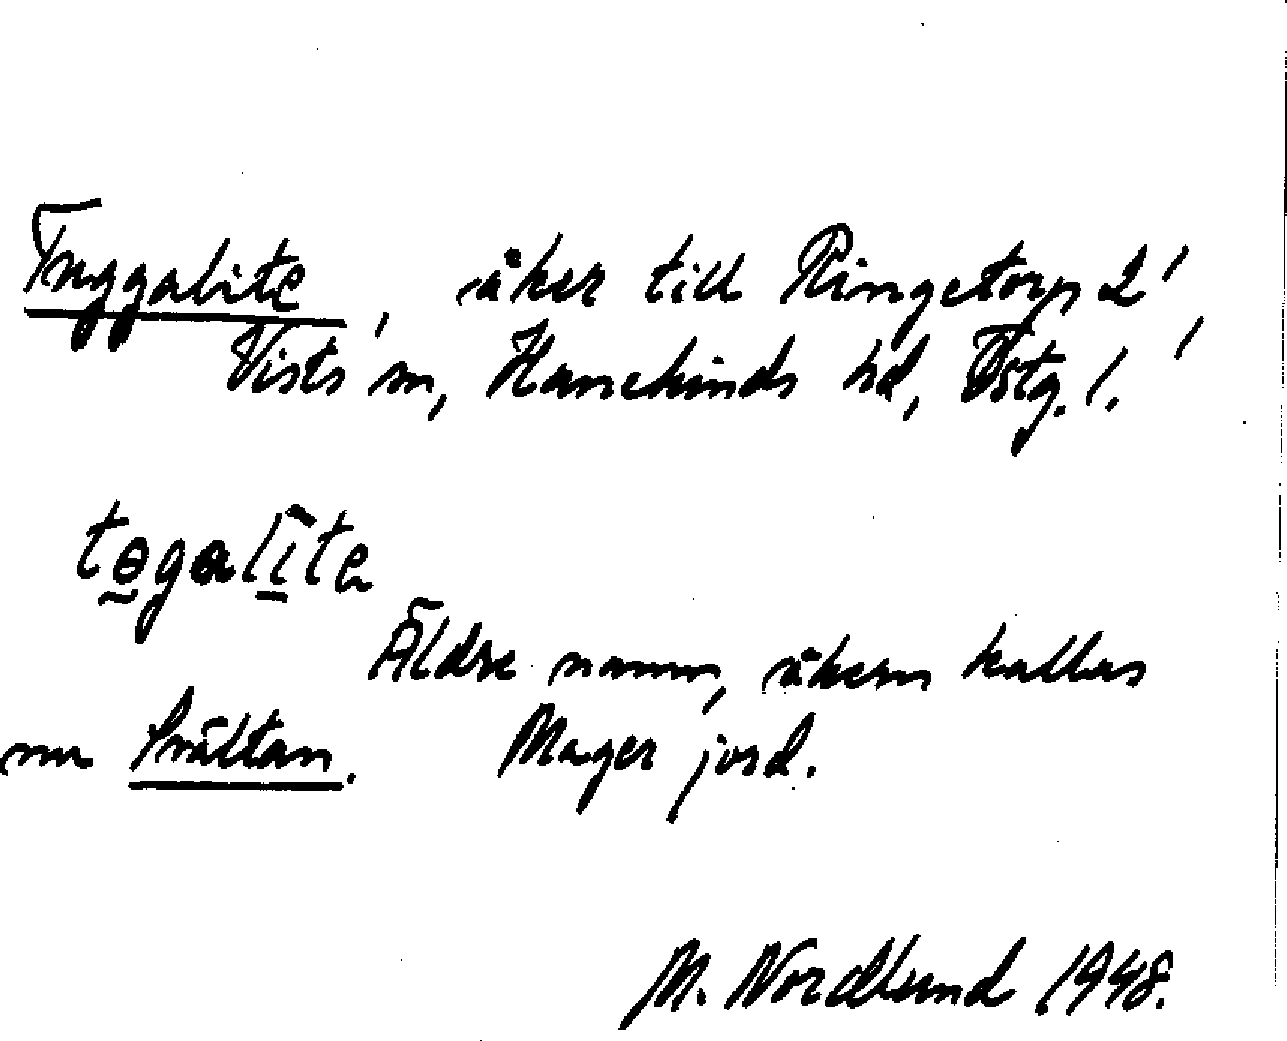 Tuggalite, åker till Ringetorp 2,
Vists sn, Hanekinds hd, Östg. l.
tøgalīte
Äldre namn, åkern kallas
nu Svältan. Mager jord.
M. Nordlund 1948.